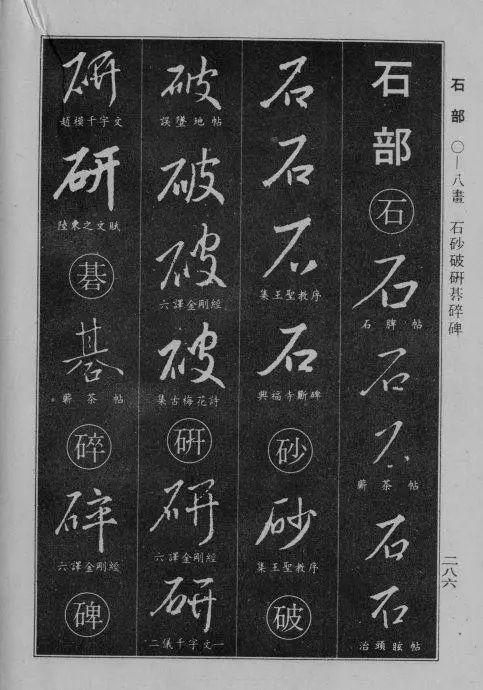 石部 〇—八畫 石砂破研碁碎碑
二八六
石部
石
石
石脾帖
石
石
蘄茶帖
石
石
治頭眩帖
石
石
石
集王聖教序
石
興福寺斷碑
砂
砂
集王聖教序
破
破
誤墜地帖
破
破
六譯金剛經
破
集古梅花詩
研
研
六譯金剛經
研
二儀千字文一
研
趙模千字文
研
陸柬之文賦
碁
碁
蘄茶帖
碎
碎
六譯金剛經
碑